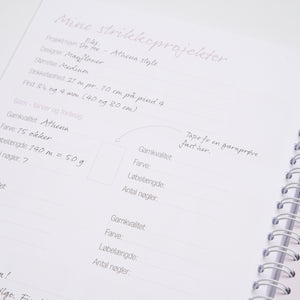 Mine strikkeprojekter
Projektnavn: Blå
Dottir - Athena style
Designer: Mayflower
Størrelse: Medium
Strikkefasthed: 21 m pr. 10 cm på pind 4
Pind: 3½ og 4 mm (40 og 80 cm)
Garn - farver og forbrug
Garnkvalitet: Athena
Farve: 15 okker
Løbelængde: 140 m = 50 g
Antal nøgler: 7
Tape fx en garnprøve
fast her
Garnkvalitet:
Farve:
Løbelængde:
Antal nøgler:
Garnkvalitet:
Farve:
Løbelængde:
Antal nøgler: